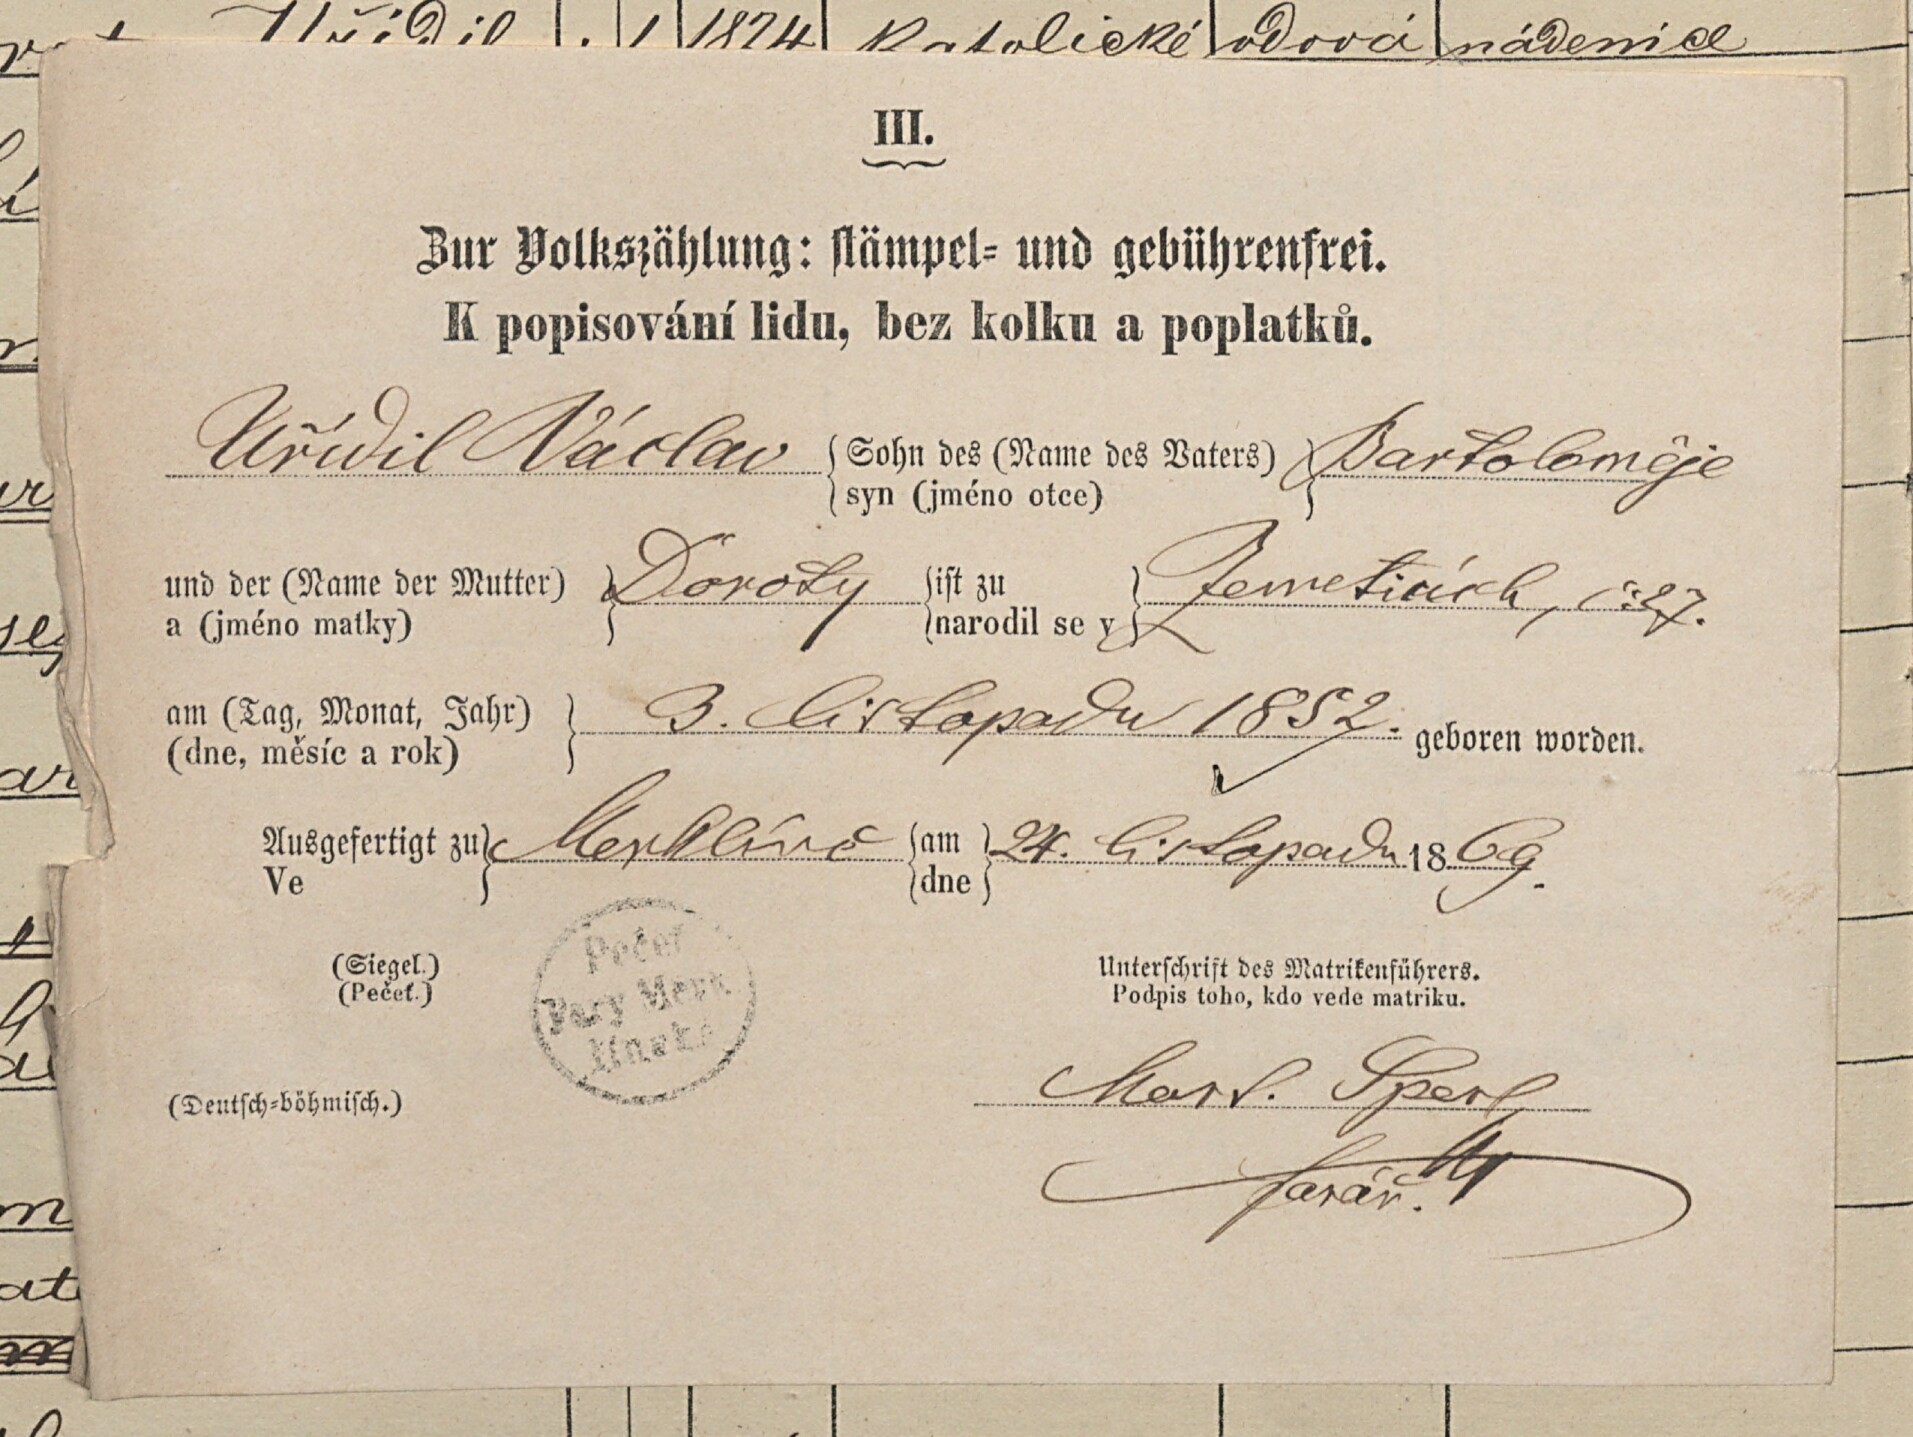 Uřidil . 1 1824 Katolické vdová nádenice
III.
Zur Volkszählung: stämpel- und gebührenfrei.
K popisování lidu, bez kolku a poplatků.
Uřídil Václav Sohn des (Name des Vaters) Bartoloměje
syn (jméno otce)
und der (Name der Mutter) Doroty ist zu Zemeticích, č. 27.
a (jméno matky) narodil se v
am (Tag, Monat, Jahr) 3. listopadu 1852. geboren worden.
(dne, měsíc a rok)
Ausgefertigt zu Merklíně am 24. listopadu 1869.
Ve dne
(Siegel.)
(Pečeť.)
Pečeť
Fary Merk
línské
Unterschrift des Matrikenführers.
Podpis toho, kdo vede matriku.
Mart. Sperl
farář.
(Deutsch-böhmisch.)